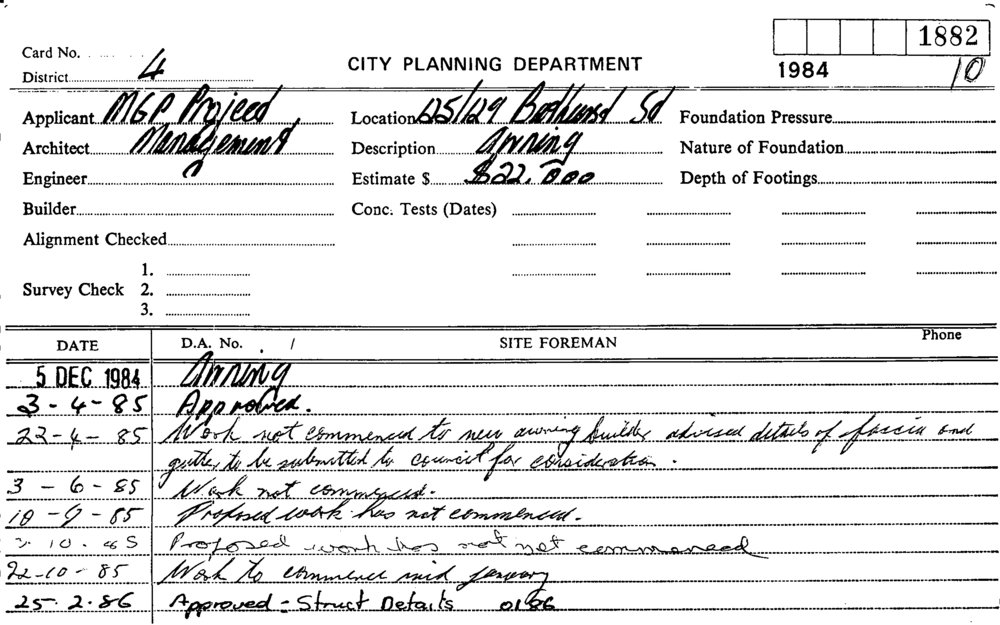 1882
Card No.
CITY PLANNING DEPARTMENT
1984 10
District 4
Applicant MGP Project Location 125/129 Bathurst St Foundation Pressure
Architect Management Description Awning Nature of Foundation
Engineer Estimate $ $22.000 Depth of Footings
Builder Conc. Tests (Dates)
Alignment Checked
1.
Survey Check 2.
3.
DATE D.A. No. / SITE FOREMAN Phone
5 DEC 1984 Awning
3-4-85 Approved.
22-4-85 Work not commenced to new awning builder advised details of fascia and
gutter to be submitted to council for consideration.
3-6-85 Work not commenced.
10-9-85 Proposed work has not commenced.
10.85 Proposed work has not yet commenced
22-10-85 Work to commence mid January
25.2.86 Approved - Struct Details